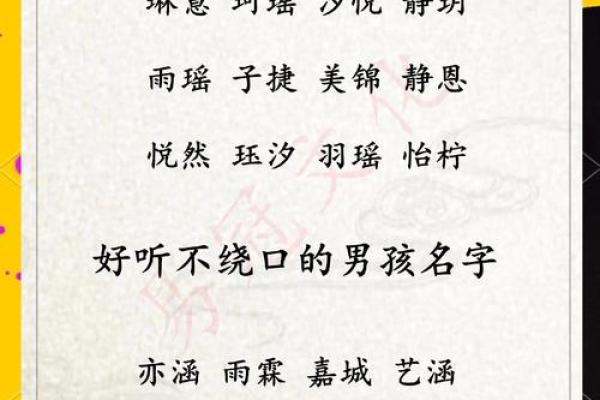 琳意 珂瑶 汐悦 静玥
雨瑶 子捷 美锦 静恩
悦然 珏汐 羽瑶 怡柠
好听不绕口的男孩名字
亦涵 雨霖 嘉城 艺涵
易冠文化